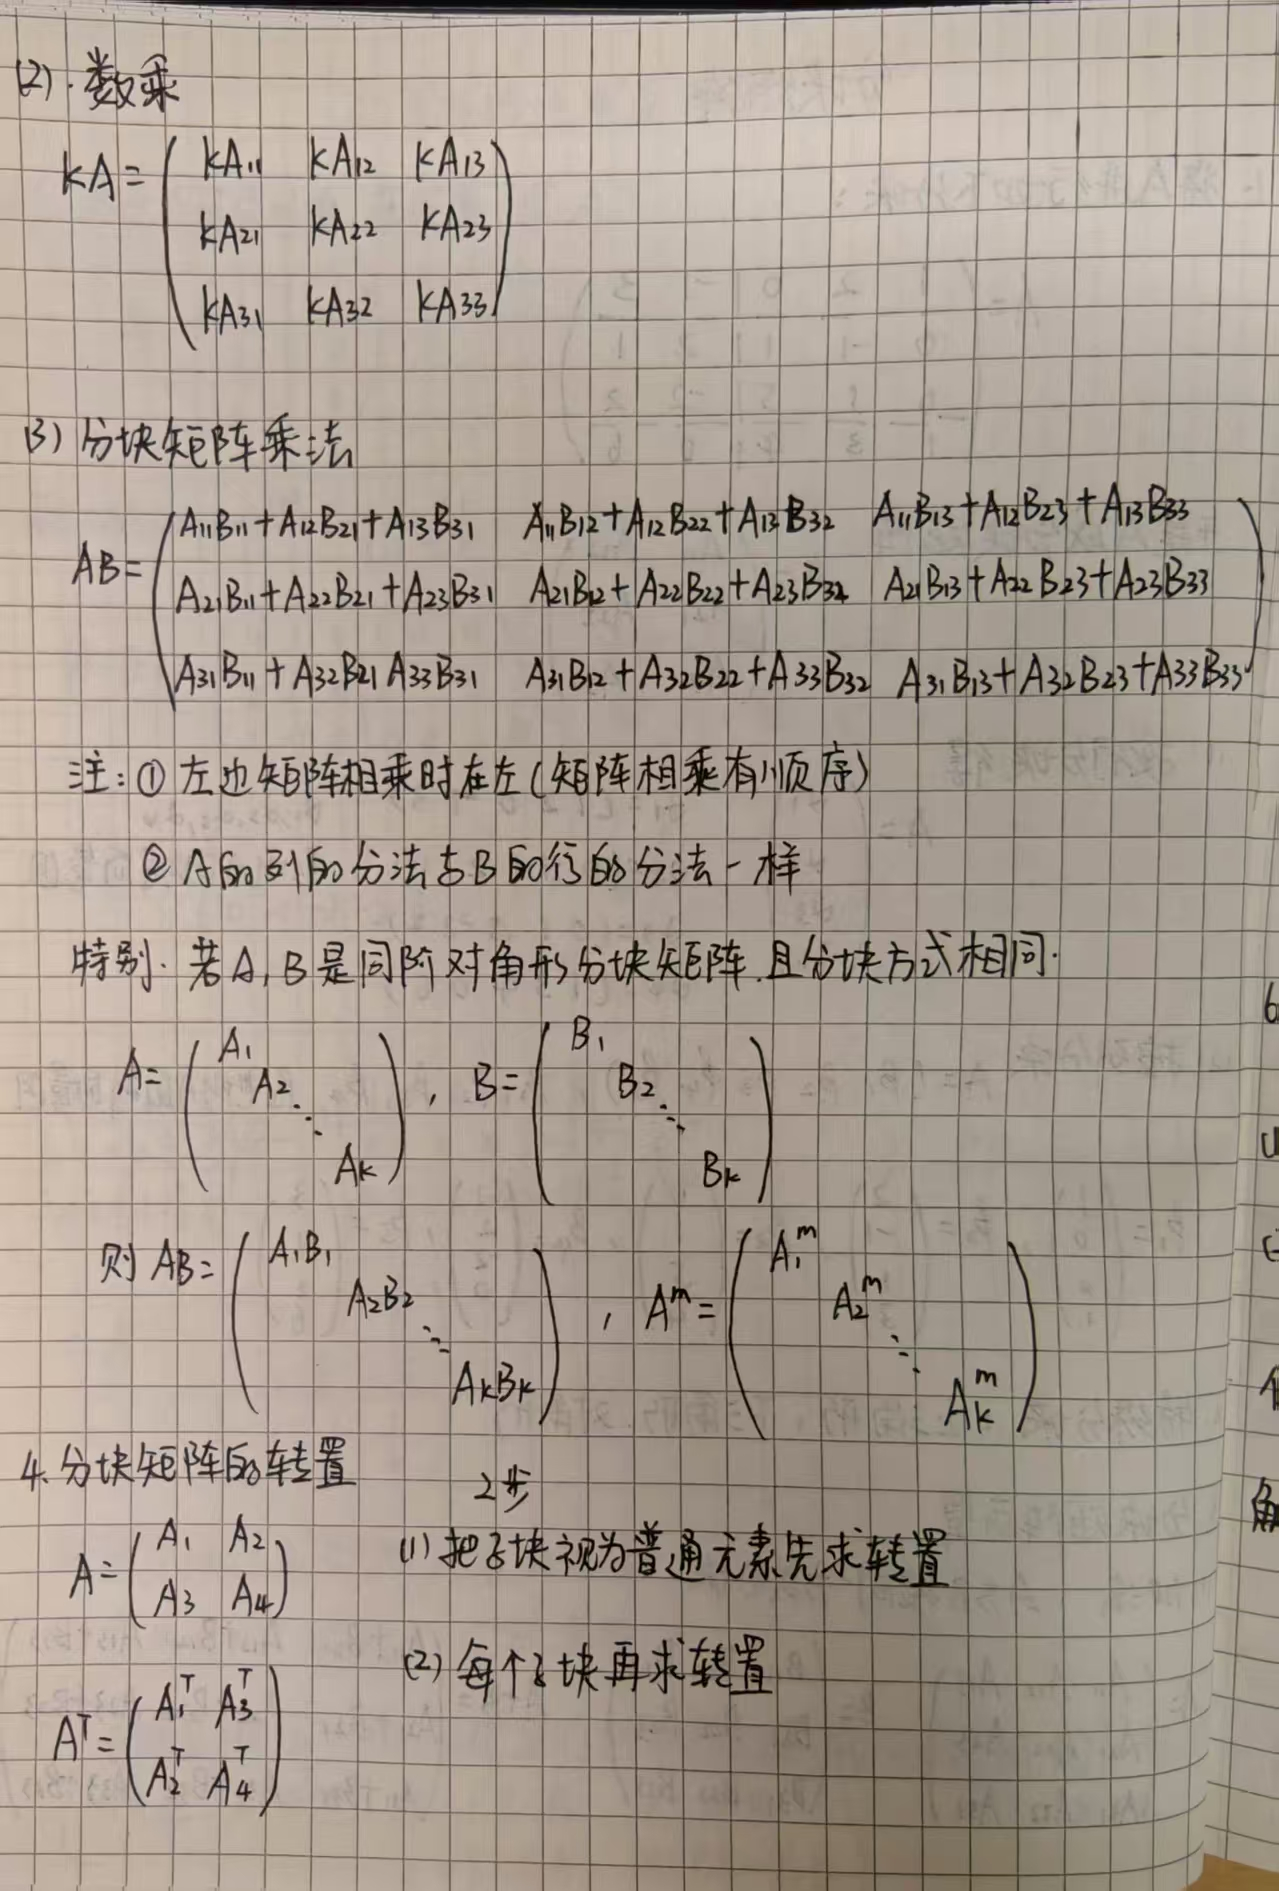 (2). 数乘
kA = ( kA11 kA12 kA13
kA21 kA22 kA23
kA31 kA32 kA33 )
(3) 分块矩阵乘法
AB = ( A11B11+A12B21+A13B31 A11B12+A12B22+A13B32 A11B13+A12B23+A13B33
A21B11+A22B21+A23B31 A21B12+A22B22+A23B32 A21B13+A22B23+A23B33
A31B11+A32B21 A33B31 A31B12+A32B22+A33B32 A31B13+A32B23+A33B33 )
注:① 左边矩阵相乘时在左(矩阵相乘有顺序)
② A的列的分法与B的行的分法一样
特别. 若A,B是同阶对角形分块矩阵.且分块方式相同.
A = ( A1 A2 ⋱ Ak ), B = ( B1 B2 ⋱ Bk )
则 AB = ( A1B1 A2B2 ⋱ AkBk ), A^m = ( A1^m A2^m ⋱ Ak^m )
4. 分块矩阵的转置
2步
A = ( A1 A2
A3 A4 )
(1) 把子块视为普通元素先求转置
(2) 每个子块再求转置
A^T = ( A1^T A3^T
A2^T A4^T )